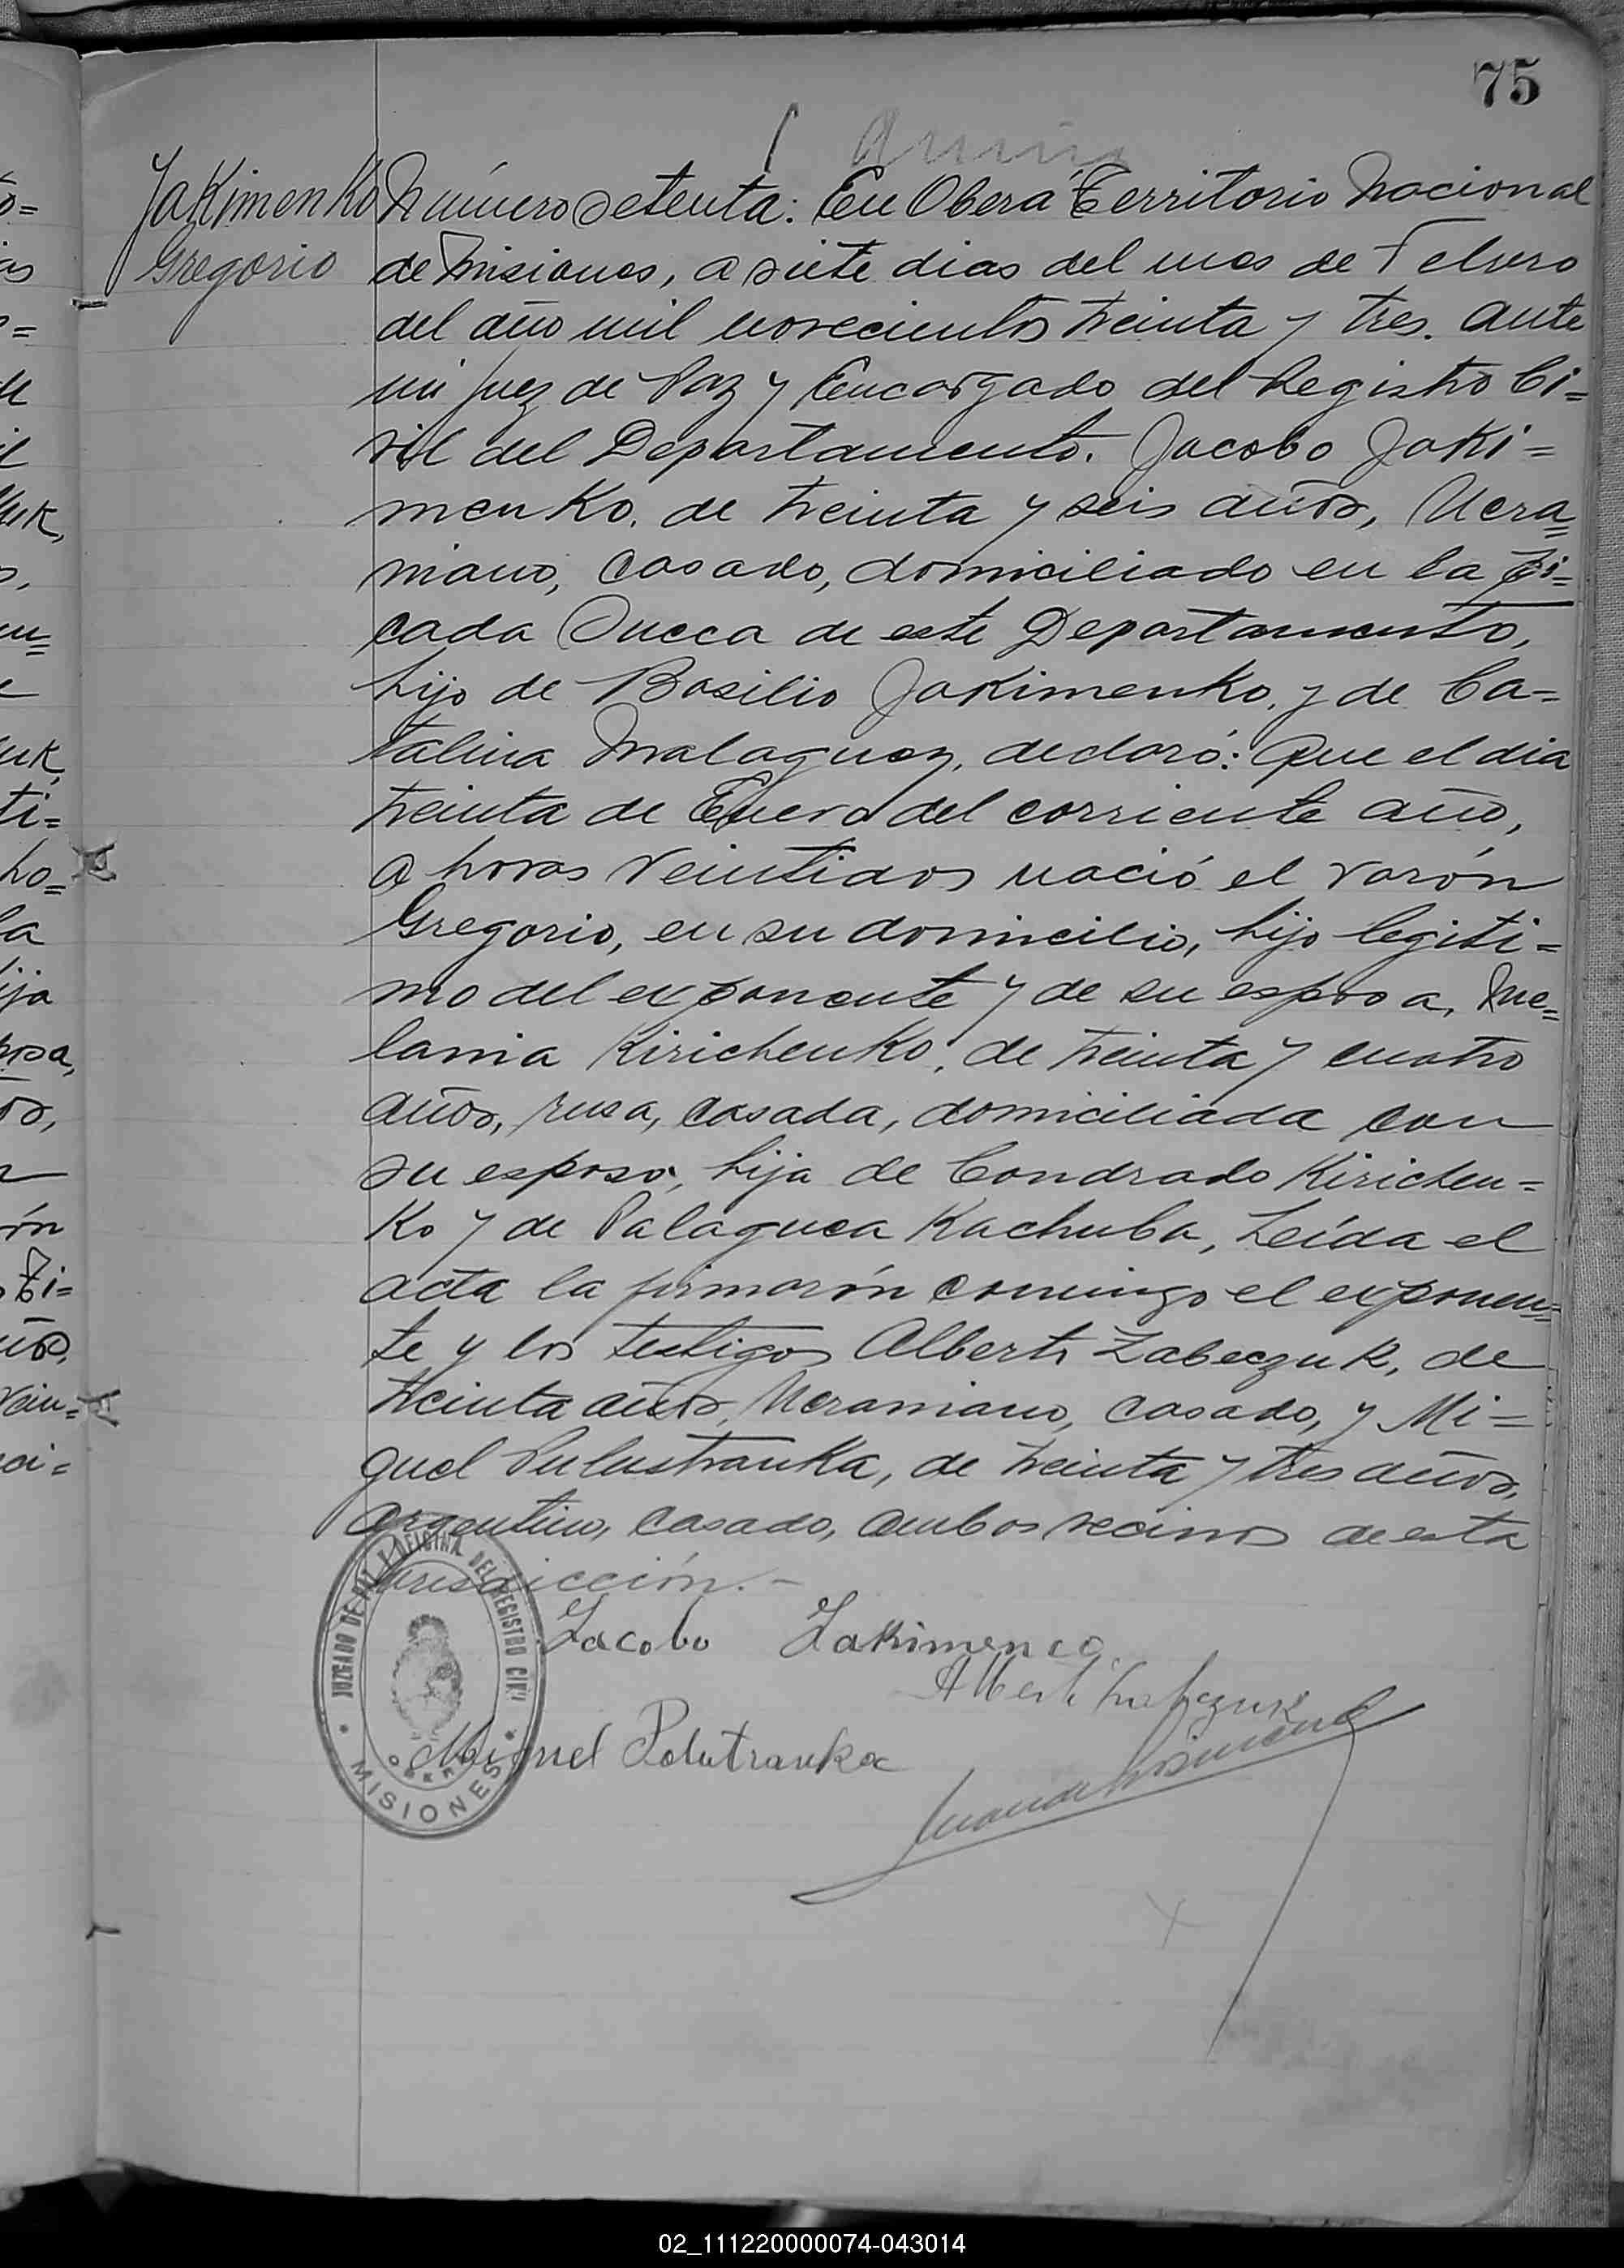 75
Jakimenko
Gregorio
Número Setenta: En Oberá Territorio Nacional
de Misiones, a siete dias del mes de Febrero
del año mil novecientos treinta y tres. ante
mi Juez de Paz y Encargado del Registro Ci=
vil del Departamento. Jacobo Jaki=
menko, de treinta y seis años, Ucra=
niano, casado, domiciliado en la Pi=
cada Sueca de este Departamento,
hijo de Basilio Jakimenko, y de Ca=
talina declaró: Que el dia
treinta de Enero del corriente año,
a horas veintidos nació el varón
Gregorio, en su domicilio, hijo legiti=
mo del exponente y de su esposa, Me=
lania Kirichenko, de treinta y cuatro
años, rusa, casada, domiciliada con
su esposo, hija de Condrado Kirichen=
ko y de Palaguea Kachuba, Leída el
acta la firmarón conmigo el exponen=
te y los testigos Alberto Zabeczuk, de
treinta años, Ucraniano, casado, y Mi=
guel Pulustranka, de treinta y tres años,
argentino, casado, ambos vecinos de esta
jurisdicción.-
Jacobo Jakimenco
Miguel Polutranka
JUZGADO DE PAZ Y OFICINA DEL REGISTRO CIVIL
OBERA
MISIONES
02_111220000074-043014